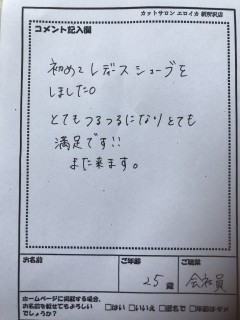 カットサロン エロイカ 新所沢店
コメント記入欄
初めてレディースシェーブを
しました。
とてもつるつるになりとても
満足です!!
また来ます。
お名前
ご年齢
ご職業
25 歳
会社員
ホームページに掲載する場合、
お名前を載せてもよろしい
でしょうか?
□はい □いいえ □匿名で □年齢はダメ